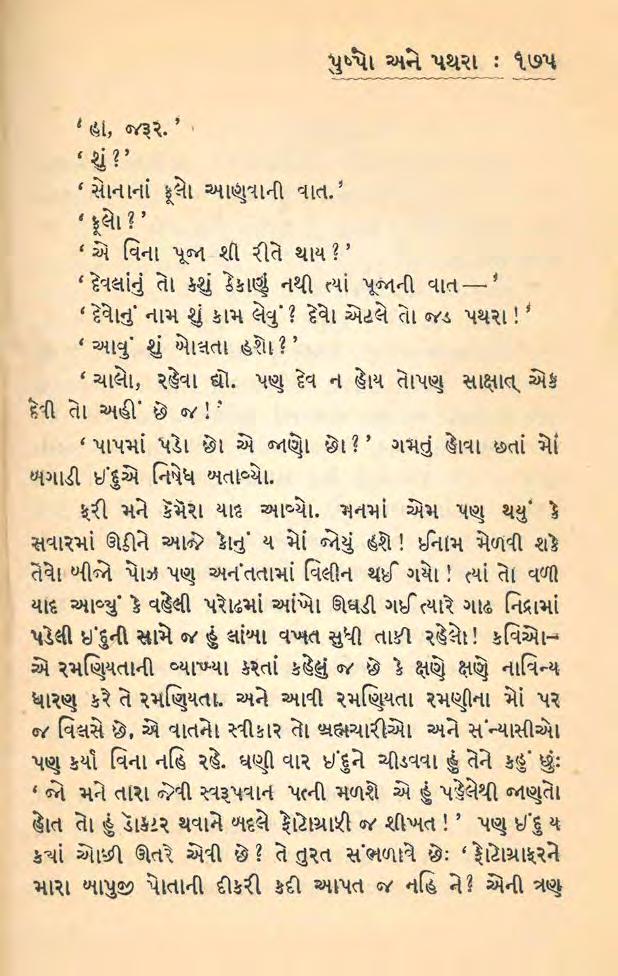 પુષ્પો અને પથરા : ૧૭૫
‘ હા, જરૂર. ’
‘ શું ? ’
‘ સોનાનાં ફૂલો આણવાની વાત. ’
‘ ફૂલો ? ’
‘ એ વિના પૂજા શી રીતે થાય ? ’
‘ દેવલાંનું તો કશું ઠેકાણું નથી ત્યાં પૂજાની વાત— ’
‘ દેવોનું નામ શું કામ લેવું ? દેવો એટલે તો જડ પથરા ! ’
‘ આવું શું બોલતા હશો ? ’
‘ ચાલો, રહેવા દ્યો. પણ દેવ ન હોય તોપણ સાક્ષાત્ એક
દેવી તો અહીં છે જ ! ’
‘ પાપમાં પડો છો એ જાણો છો ? ’ ગમતું હોવા છતાં મોં
બગાડી ઈંદુએ નિષેધ બતાવ્યો.
ફરી મને કૅમૅરા યાદ આવ્યો. મનમાં એમ પણ થયું કે
સવારમાં ઊઠીને આજે કોનું ય મોં જોયું હશે ! ઈનામ મેળવી શકે
તેવો બીજો પોઝ પણ અનંતતામાં વિલીન થઈ ગયો ! ત્યાં તો વળી
યાદ આવ્યું કે વહેલી પરોઢમાં આંખો ઊઘડી ગઈ ત્યારે ગાઢ નિદ્રામાં
પડેલી ઈંદુની સામે જ હું લાંબા વખત સુધી તાકી રહેલો ! કવિઓ–
એ રમણિયતાની વ્યાખ્યા કરતાં કહેલું જ છે કે ક્ષણે ક્ષણે નાવિન્ય
ધારણ કરે તે રમણિયતા. અને આવી રમણિયતા રમણીના મોં પર
જ વિલસે છે, એ વાતનો સ્વીકાર તો બ્રહ્મચારીઓ અને સંન્યાસીઓ
પણ કર્યા વિના નહિ રહે. ઘણી વાર ઈંદુને ચીડવવા હું તેને કહું છું:
‘ જો મને તારા જેવી સ્વરૂપવાન પત્ની મળશે એ હું પહેલેથી જાણતો
હોત તો હું ડૉકટર થવાને બદલે ફોટોગ્રાફી જ શીખત ! ’ પણ ઈંદુ ય
ક્યાં ઓછી ઊતરે એવી છે ? તે તુરત સંભળાવે છે: ‘ ફોટોગ્રાફરને
મારા બાપુજી પોતાની દીકરી કદી આપત જ નહિ ને ? એની ત્રણ